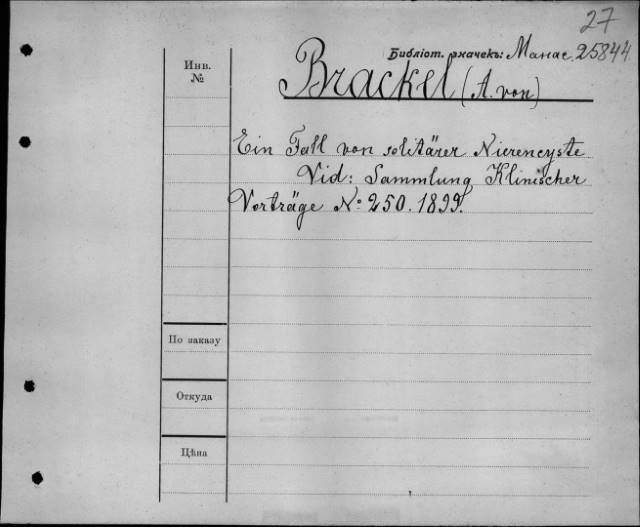 27
Библіот. значекъ: Манас. 25844.
Инв.
№
Brackel (A. von)
Ein Fall von solitärer Nierencyste
Vid: Sammlung Klinischer
Vorträge No: 250. 1899.
По заказу
Откуда
Цѣна